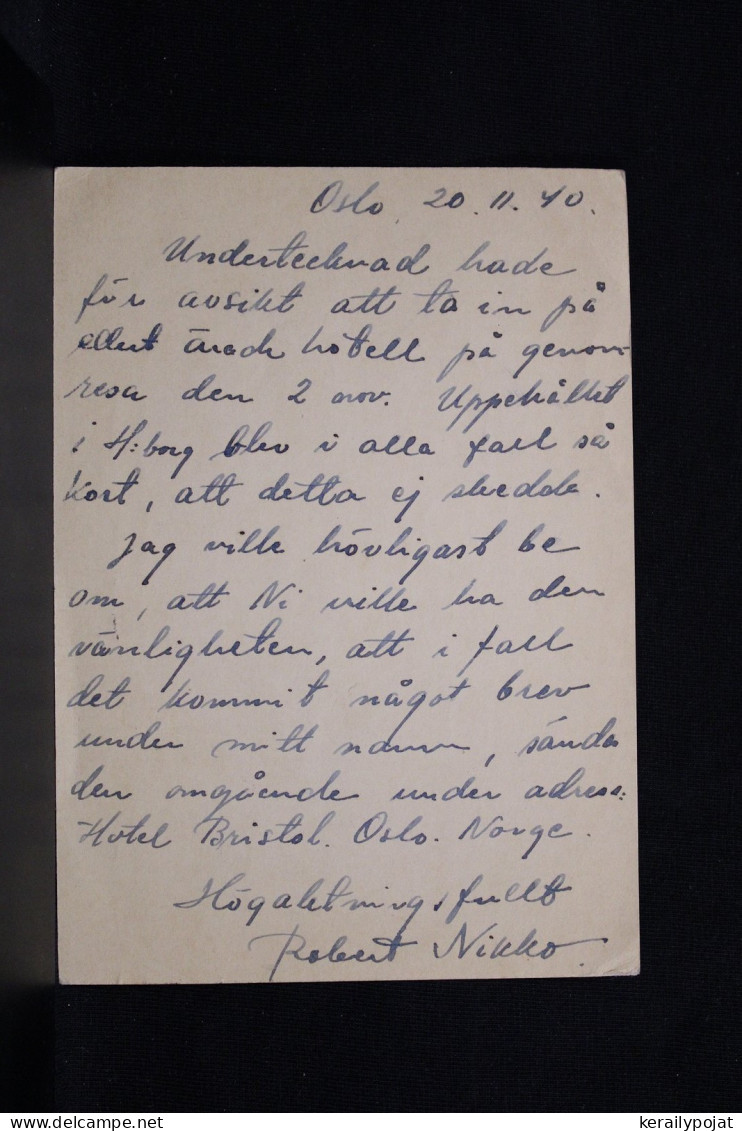 Oslo 20.11.40.
Undertecknad hade
för avsikt att ta in på
edert ärade hotell på genom-
resa den 2 nov. Uppehållet
i H:borg blev i alla fall så
kort, att detta ej skedde.
Jag ville hövligast be
om, att Ni ville ha den
vänligheten, att i fall
det kommit något brev
under mitt namn, sända
den omgående under adress:
Hotel Bristol. Oslo. Norge.
Högaktningsfullt
Robert Nikko.
kerailypojat